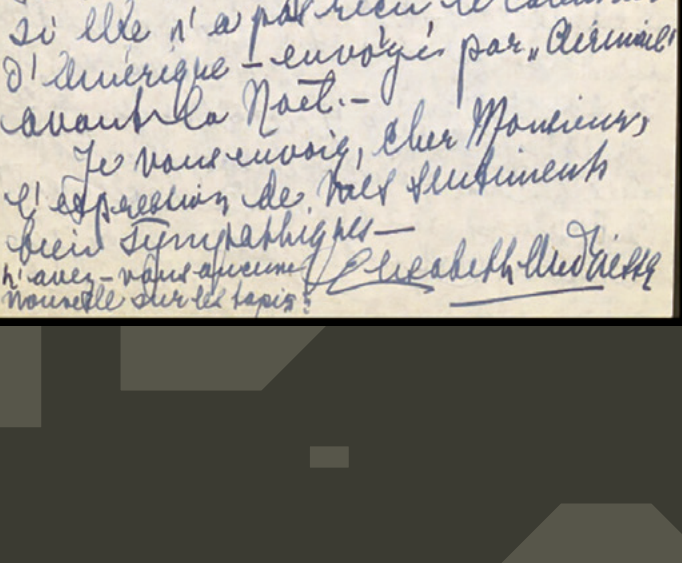 si elle n'a pas recu le
d'Amérique - envoyés par "Airmail"
avant la Noël. -
Je vous envoie, cher Monsieur,
l'expression de mes sentiments
bien sympathiques -
n'avez-vous aucune Elisabeth
nouvelle sur les tapis?